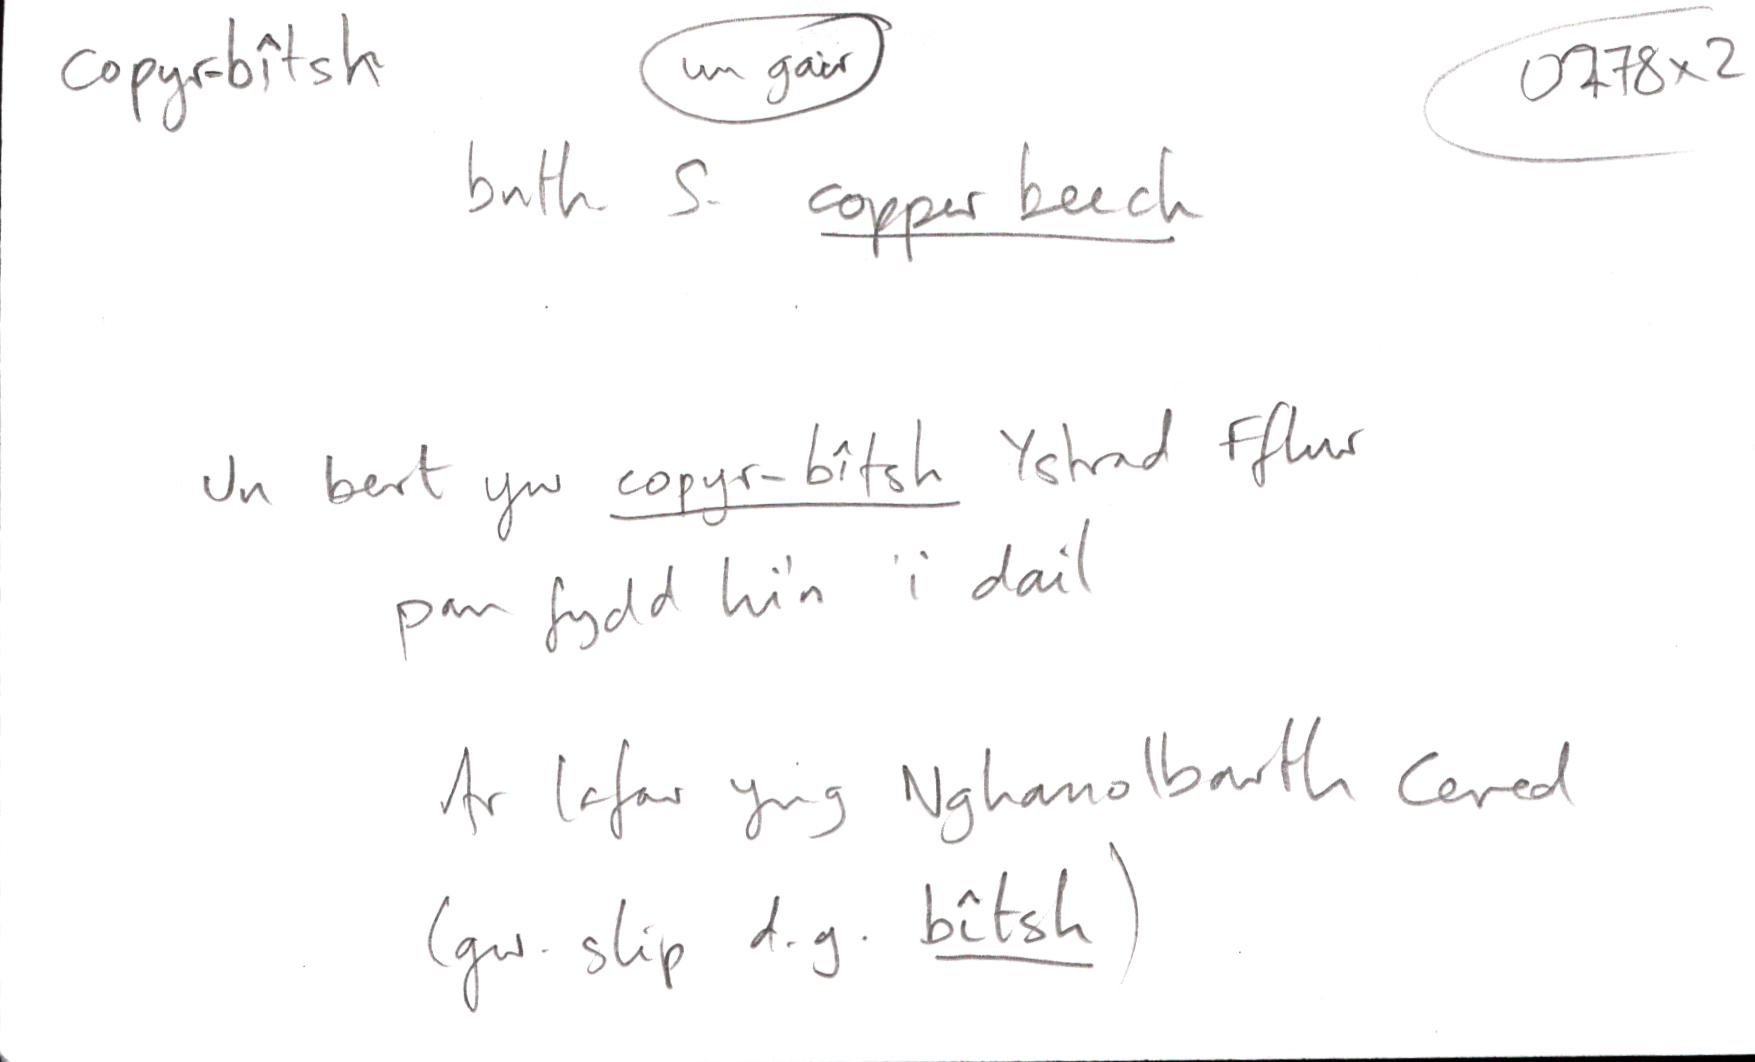 copyr-bîtsh un gair 0278x2
bnth. S. copper beech
Un bert yw copyr-bîtsh Ystrad Fflur
pan fydd hi'n 'i dail
Ar lafar yng Nghanolbarth Cered
(gw. slip d.g. bîtsh)